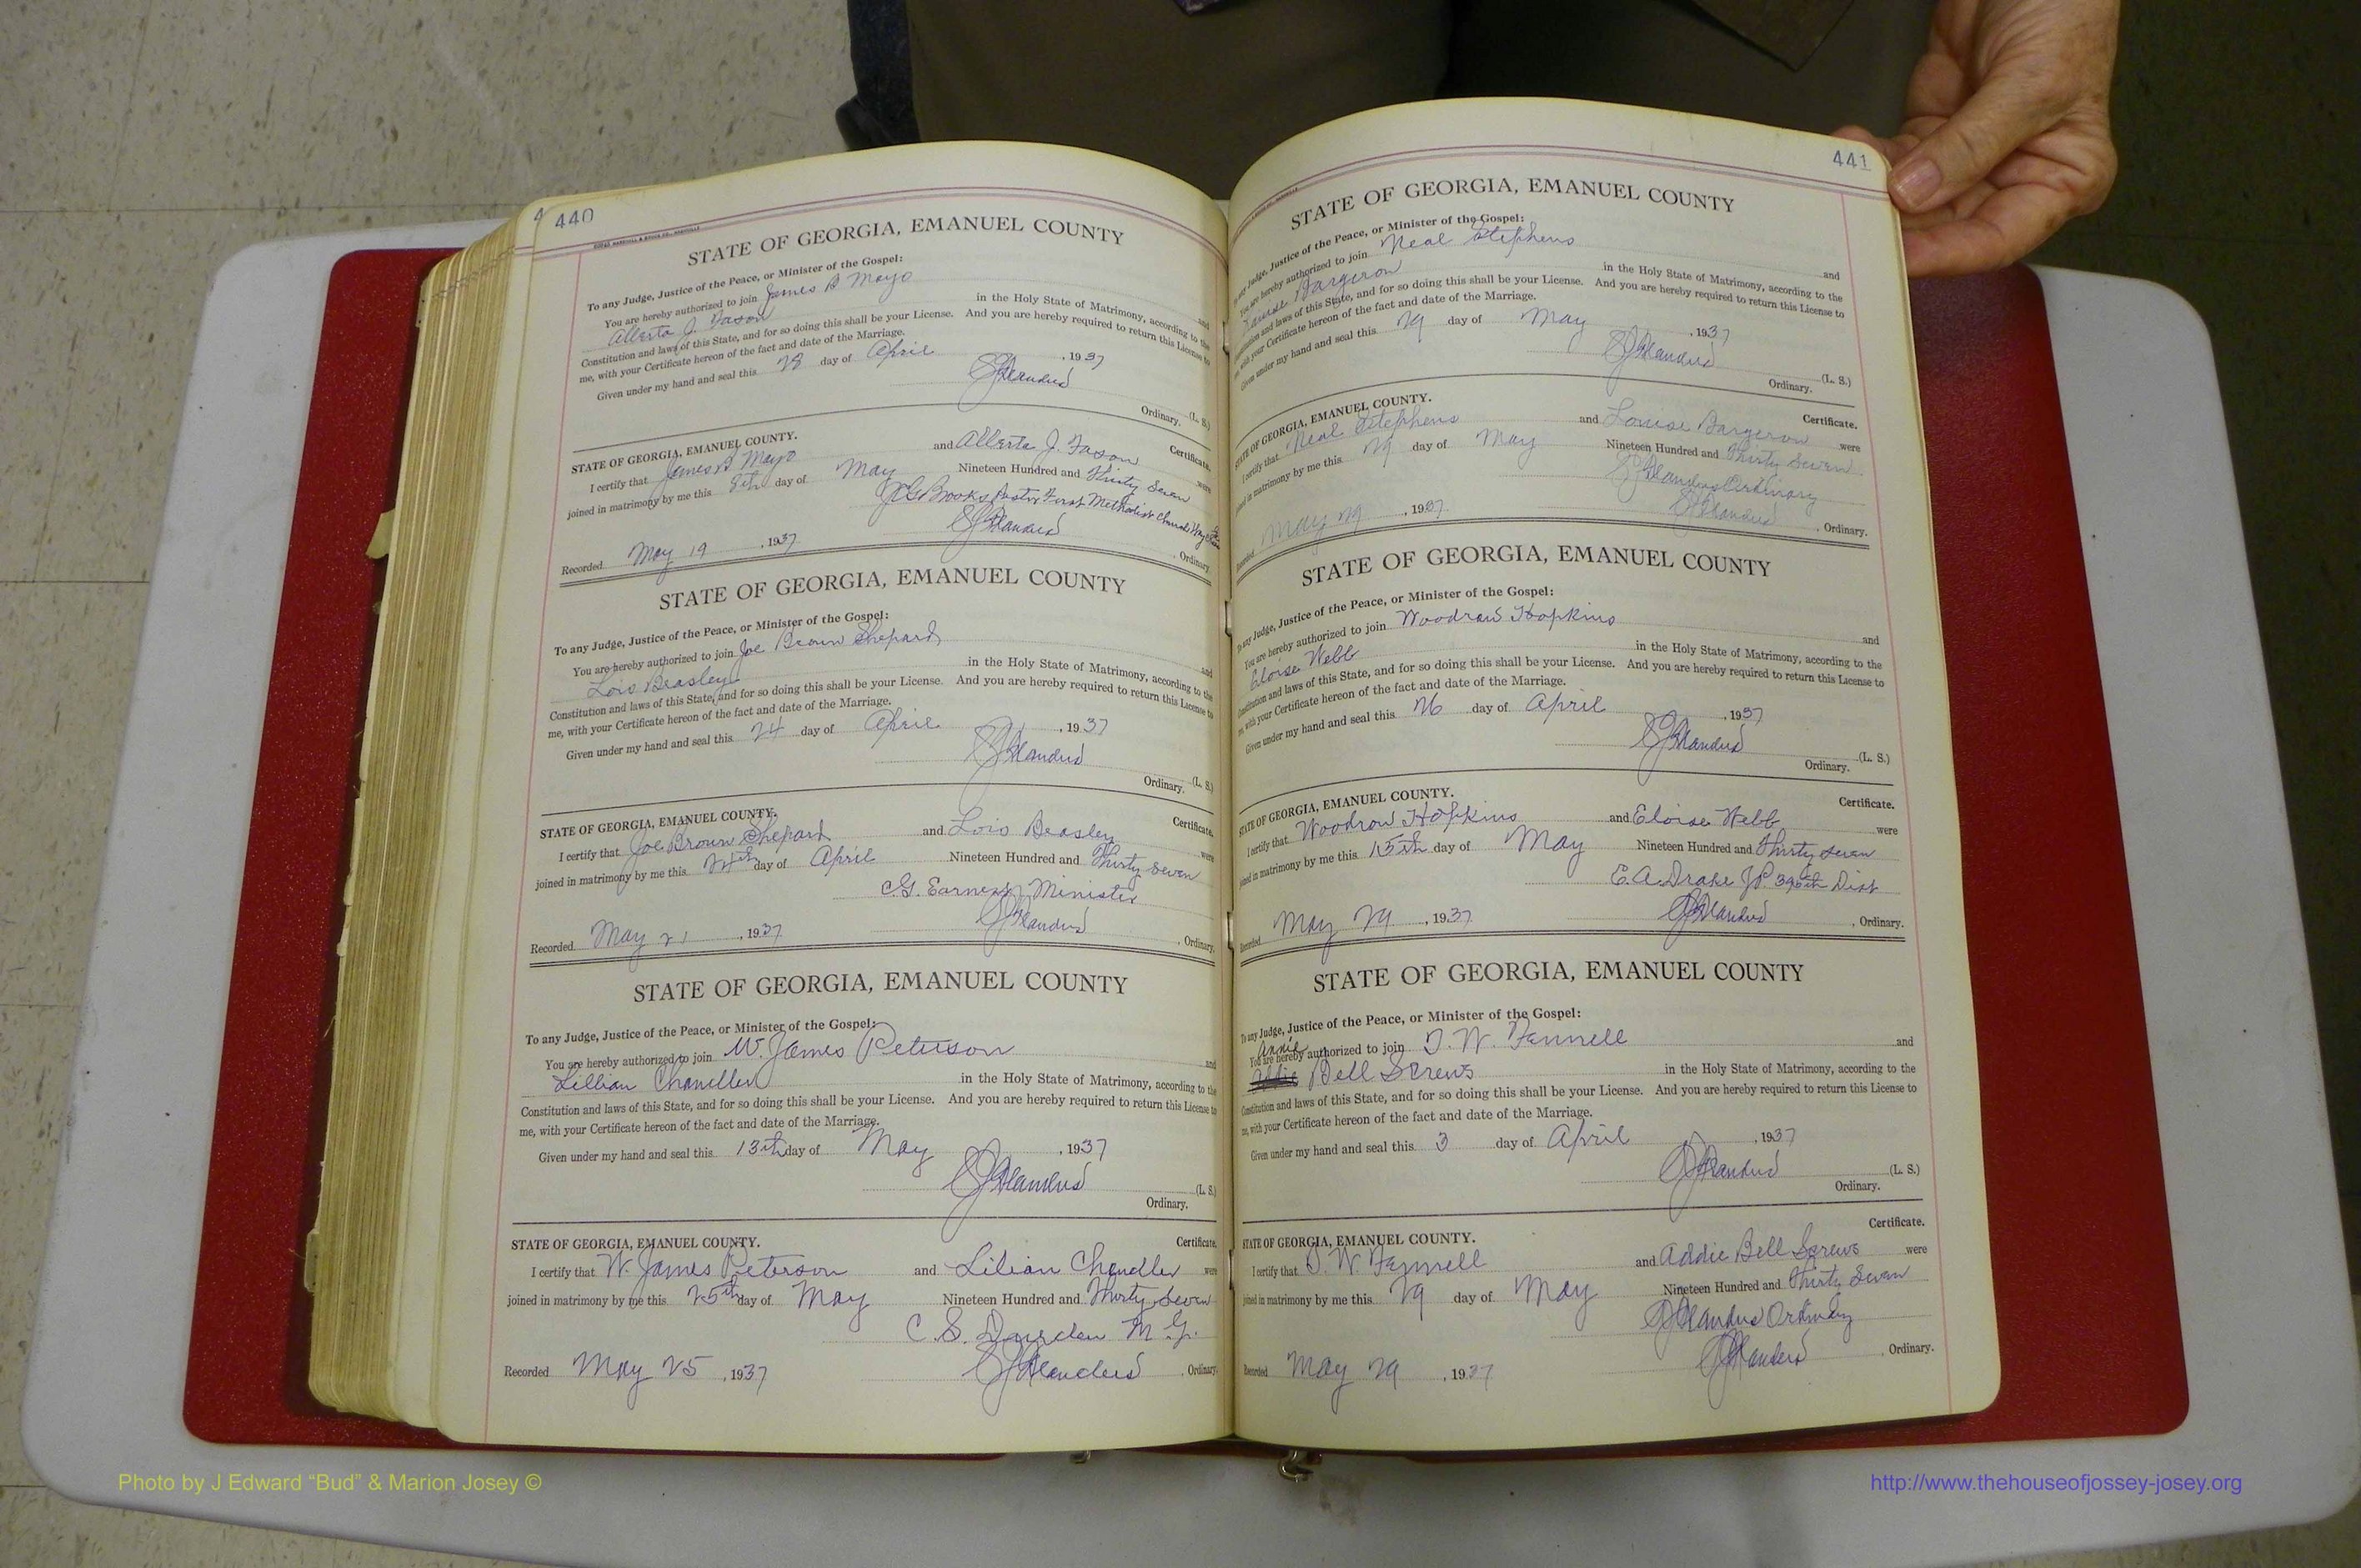 440
STATE OF GEORGIA, EMANUEL COUNTY
To any Judge, Justice of the Peace, or Minister of the Gospel:
You are hereby authorized to join James B Mayo and
Alberta J. Fason in the Holy State of Matrimony, according to the
Constitution and laws of this State, and for so doing this shall be your License. And you are hereby required to return this License to
me, with your Certificate hereon of the fact and date of the Marriage.
Given under my hand and seal this 28 day of April, 1937
(L. S.)
Ordinary.
STATE OF GEORGIA, EMANUEL COUNTY. Certificate.
I certify that James B Mayo and Alberta J. Fason were
joined in matrimony by me this 8th day of May Nineteen Hundred and Thirty Seven
Brooks Pastor First Methodist Church
Recorded May 19, 1937 Ordinary.
STATE OF GEORGIA, EMANUEL COUNTY
To any Judge, Justice of the Peace, or Minister of the Gospel:
You are hereby authorized to join Joe Brown Shepard and
Lois Beasley in the Holy State of Matrimony, according to the
Constitution and laws of this State, and for so doing this shall be your License. And you are hereby required to return this License to
me, with your Certificate hereon of the fact and date of the Marriage.
Given under my hand and seal this 24 day of April, 1937
(L. S.)
Ordinary.
STATE OF GEORGIA, EMANUEL COUNTY. Certificate.
I certify that Joe Brown Shepard and Lois Beasley were
joined in matrimony by me this 24th day of April Nineteen Hundred and Thirty Seven
C.G. Earnest, Minister
Recorded May 21, 1937, Ordinary.
STATE OF GEORGIA, EMANUEL COUNTY
To any Judge, Justice of the Peace, or Minister of the Gospel:
You are hereby authorized to join W. James Peterson and
Lillian Chandler in the Holy State of Matrimony, according to the
Constitution and laws of this State, and for so doing this shall be your License. And you are hereby required to return this License to
me, with your Certificate hereon of the fact and date of the Marriage.
Given under my hand and seal this 13th day of May, 1937
(L. S.)
Ordinary.
STATE OF GEORGIA, EMANUEL COUNTY. Certificate.
I certify that W. James Peterson and Lilian Chandler were
joined in matrimony by me this 25th day of May Nineteen Hundred and Thirty Seven
C. S. Durden M. G.
Recorded May 25, 1937, Ordinary.
441
STATE OF GEORGIA, EMANUEL COUNTY
To any Judge, Justice of the Peace, or Minister of the Gospel:
You are hereby authorized to join Neal Stephens and
Louise Bargeron in the Holy State of Matrimony, according to the
Constitution and laws of this State, and for so doing this shall be your License. And you are hereby required to return this License to
me, with your Certificate hereon of the fact and date of the Marriage.
Given under my hand and seal this 29 day of May, 1937
(L. S.)
Ordinary.
STATE OF GEORGIA, EMANUEL COUNTY. Certificate.
I certify that Neal Stephens and Louise Bargeron were
joined in matrimony by me this 29 day of May Nineteen Hundred and Thirty Seven
Ordinary
Recorded May 29, 1937, Ordinary.
STATE OF GEORGIA, EMANUEL COUNTY
To any Judge, Justice of the Peace, or Minister of the Gospel:
You are hereby authorized to join Woodrow Hopkins and
Eloise Webb in the Holy State of Matrimony, according to the
Constitution and laws of this State, and for so doing this shall be your License. And you are hereby required to return this License to
me, with your Certificate hereon of the fact and date of the Marriage.
Given under my hand and seal this 26 day of April, 1937
(L. S.)
Ordinary.
STATE OF GEORGIA, EMANUEL COUNTY. Certificate.
I certify that Woodrow Hopkins and Eloise Webb were
joined in matrimony by me this 15th day of May Nineteen Hundred and Thirty Seven
E. A. Drake J.P. 395th Dist
Recorded May 29, 1937, Ordinary.
STATE OF GEORGIA, EMANUEL COUNTY
To any Judge, Justice of the Peace, or Minister of the Gospel:
You are hereby authorized to join D. W. Fennell and
Annie Bell Screws in the Holy State of Matrimony, according to the
Constitution and laws of this State, and for so doing this shall be your License. And you are hereby required to return this License to
me, with your Certificate hereon of the fact and date of the Marriage.
Given under my hand and seal this 3 day of April, 1937
(L. S.)
Ordinary.
STATE OF GEORGIA, EMANUEL COUNTY. Certificate.
I certify that D. W. Fennell and Addie Bell Screws were
joined in matrimony by me this 29 day of May Nineteen Hundred and Thirty Seven
Ordinary
Recorded May 29, 1937, Ordinary.
Photo by J Edward “Bud” & Marion Josey ©
http://www.thehouseofjossey-josey.org